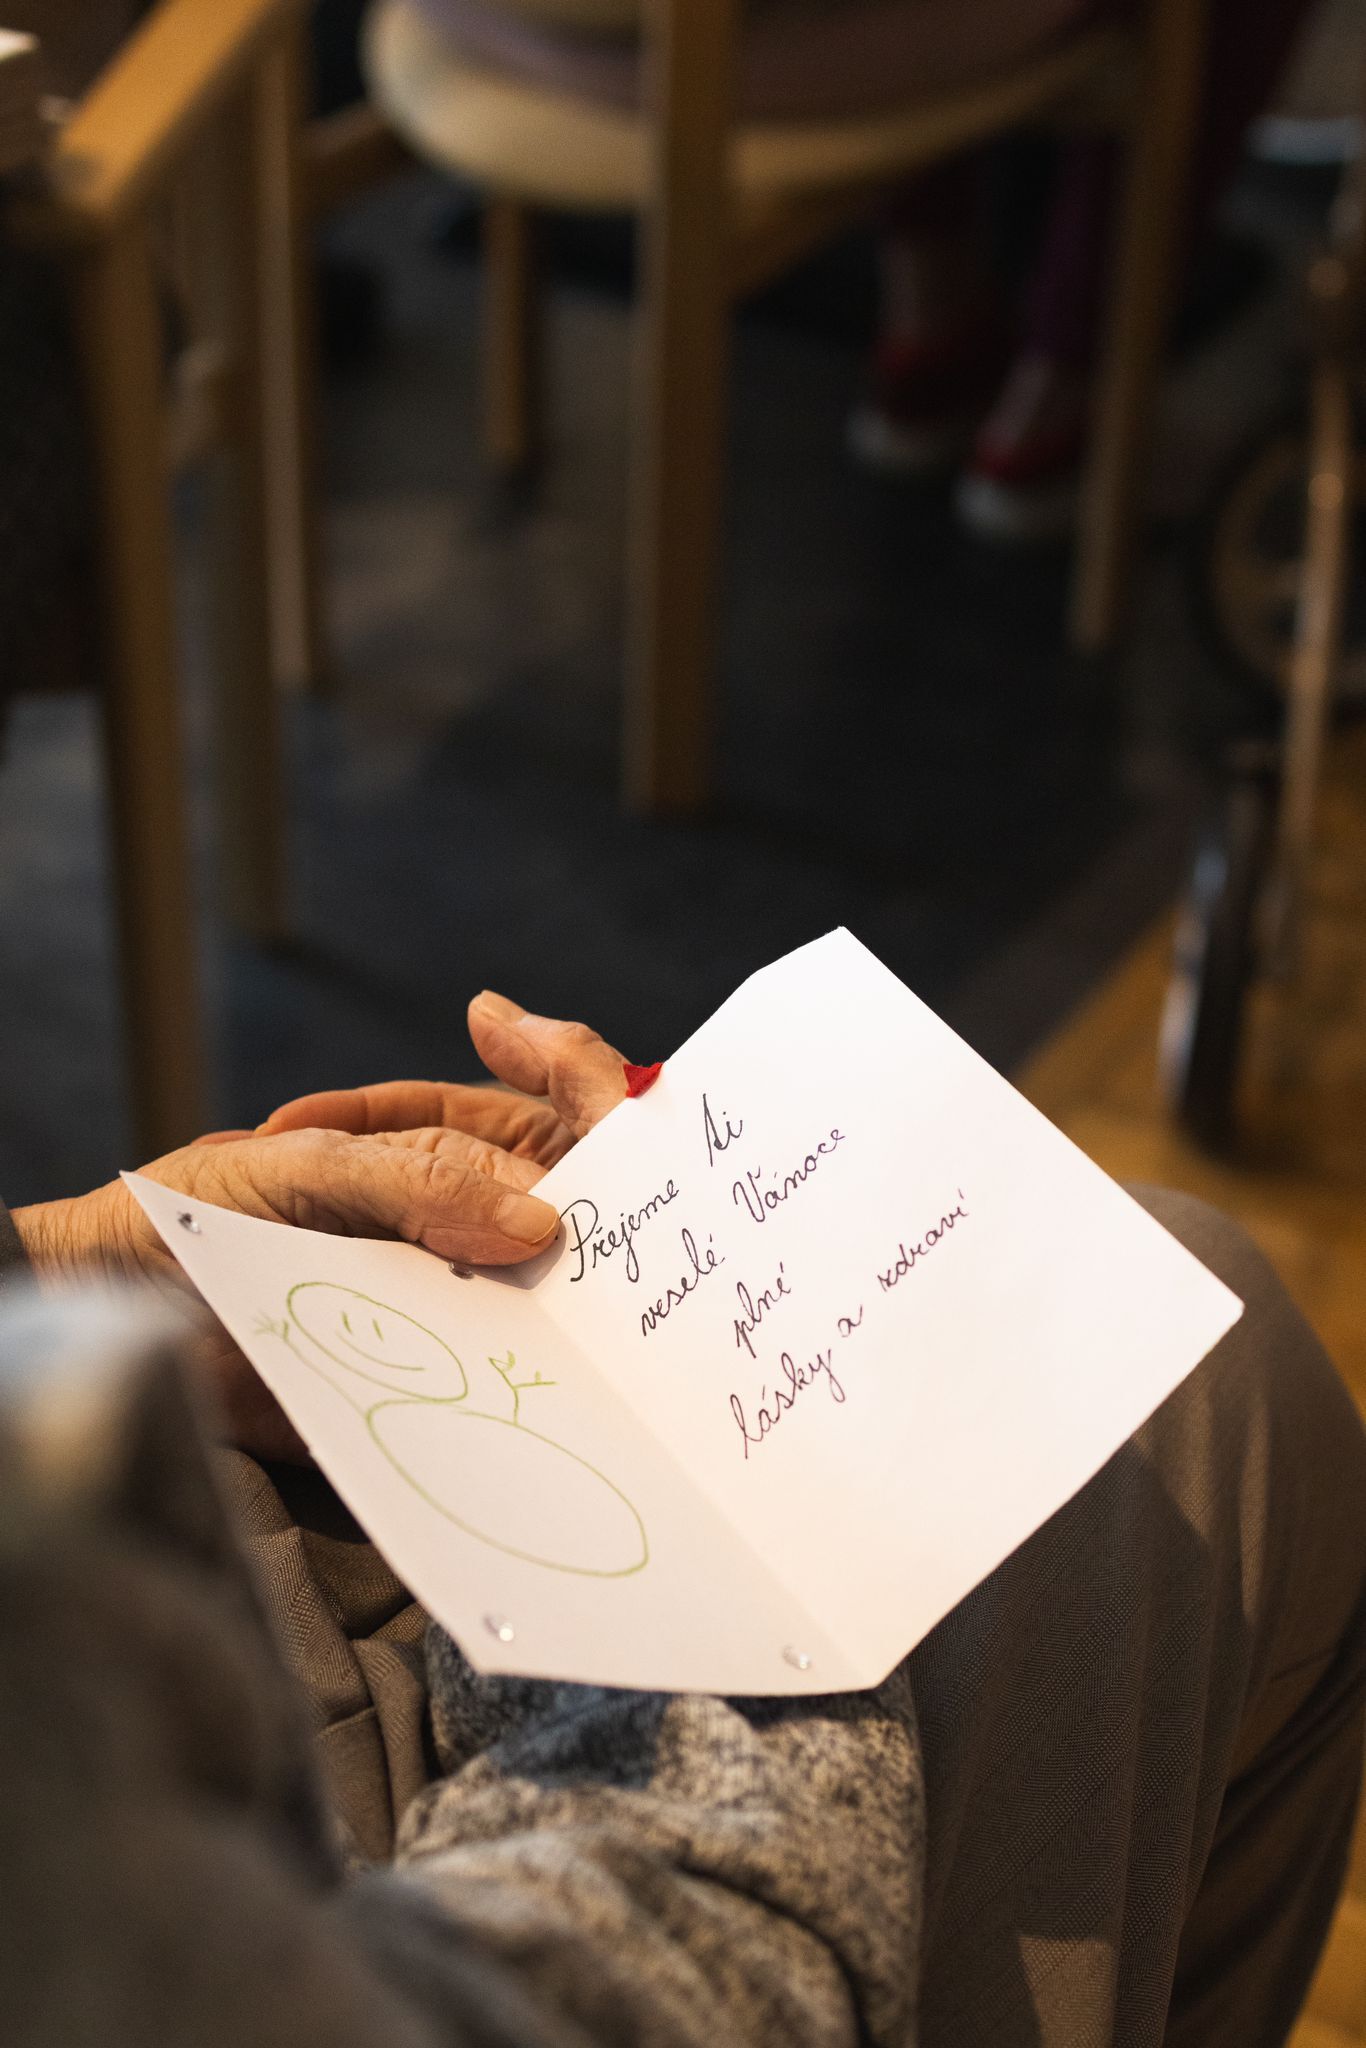 Přejeme ti
veselé Vánoce
plné
lásky a zdraví